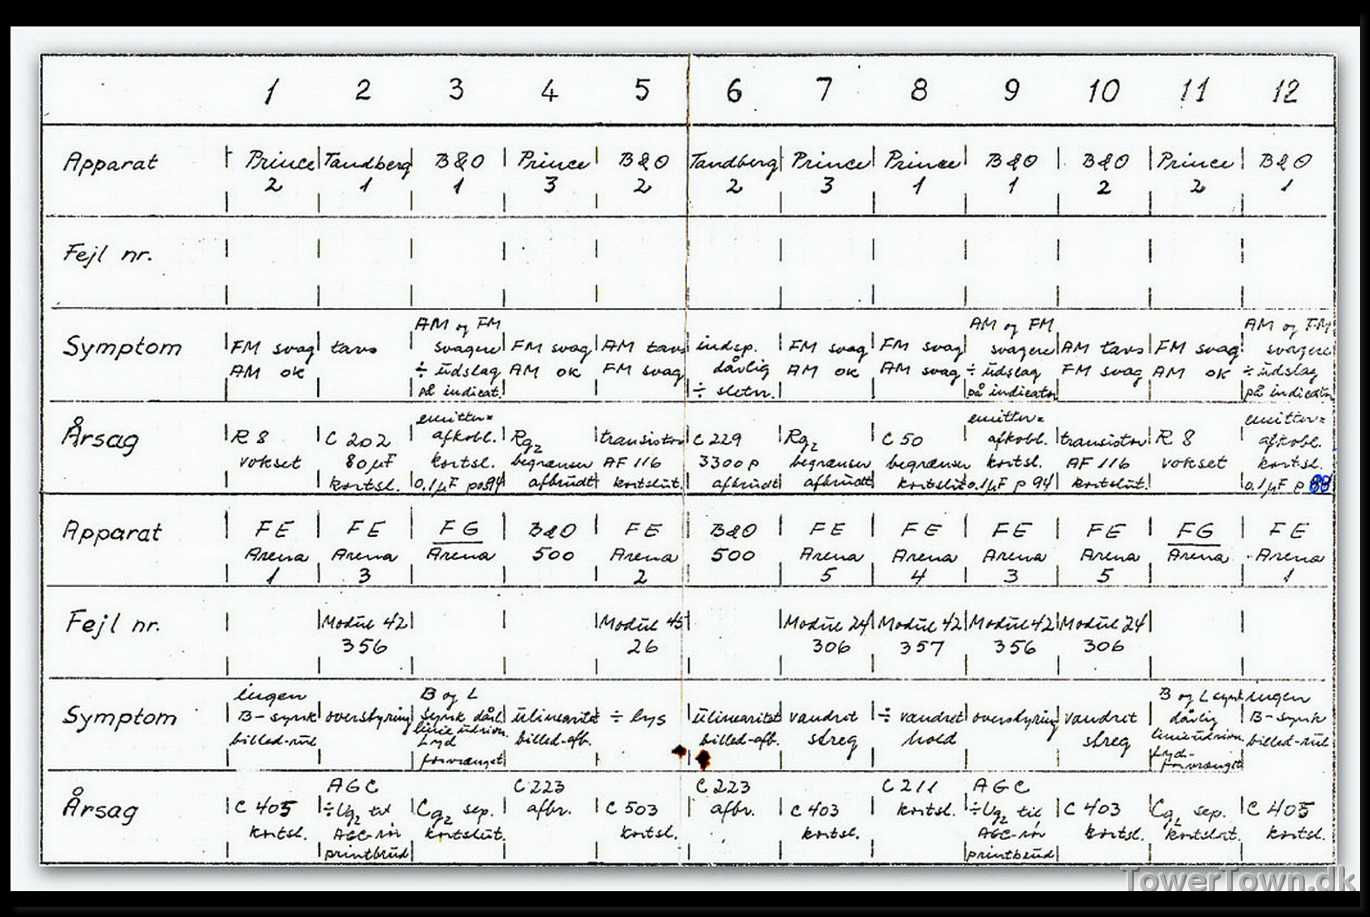 1 2 3 4 5 6 7 8 9 10 11 12
Apparat Prince Tandberg B&O Prince B&O Tandberg Prince Prince B&O B&O Prince B&O
2 1 1 3 2 2 3 1 1 2 2 1
Fejl nr.
AM og FM AM og FM AM og FM
Symptom FM svag tavs svagere FM svag AM tavs indsp. FM svag FM svag svagere AM tavs FM svag svagere
AM OK ÷ udslag AM OK FM svag dårlig AM OK AM svag ÷ udslag FM svag AM OK ÷ udslag
på indicat. ÷ sletn. på indicator på indicator
emitter= emitter= emitter=
Årsag R 8 C 202 afkobl. Rg2 transistor C 229 Rg2 C 50 afkobl. transistor R 8 afkobl.
vokset 80 µF kortsl. begrænser AF 116 3300 p begrænser begrænser kortsl. AF 116 vokset kortsl.
kortsl. 0,1µF pos94 afbrudt kortslut afbrudt afbrudt kortslut 0.1µF p 94 kortslut. 0,1µF p 88
Apparat FE FE FG B&O FE B&O FE FE FE FE FG FE
Arena Arena Arena 500 Arena 500 Arena Arena Arena Arena Arena Arena
1 3 2 5 4 3 5 1
Fejl nr. Modul 42 Modul 45 Modul 24 Modul 42 Modul 42 Modul 24
356 26 306 357 356 306
ingen B og L B og L synk ingen
Symptom B-synk overstyring synk dårl. ulinearitet ÷ lys ulinearitet vandret ÷ vandret overstyring vandret dårlig B-synk
billed-rul linieudrivn. billed-afb. billed-afb. streg hold streg linieudrivn. billed-rul
Lyd Lyd-
forvrænget forvrænget
AGC C 223 C 223 C 211 AGC
Årsag C 405 ÷Ug2 til Cg2 sep. afbr. C 503 afbr. C 403 kortsl. ÷Ug2 til C 403 Cg2 sep. C 405
kortsl. AGC-rør kortslut. kortsl. kortsl. AGC-rør kortsl. kortslut. kortsl.
printbrud printbrud
TowerTown.dk